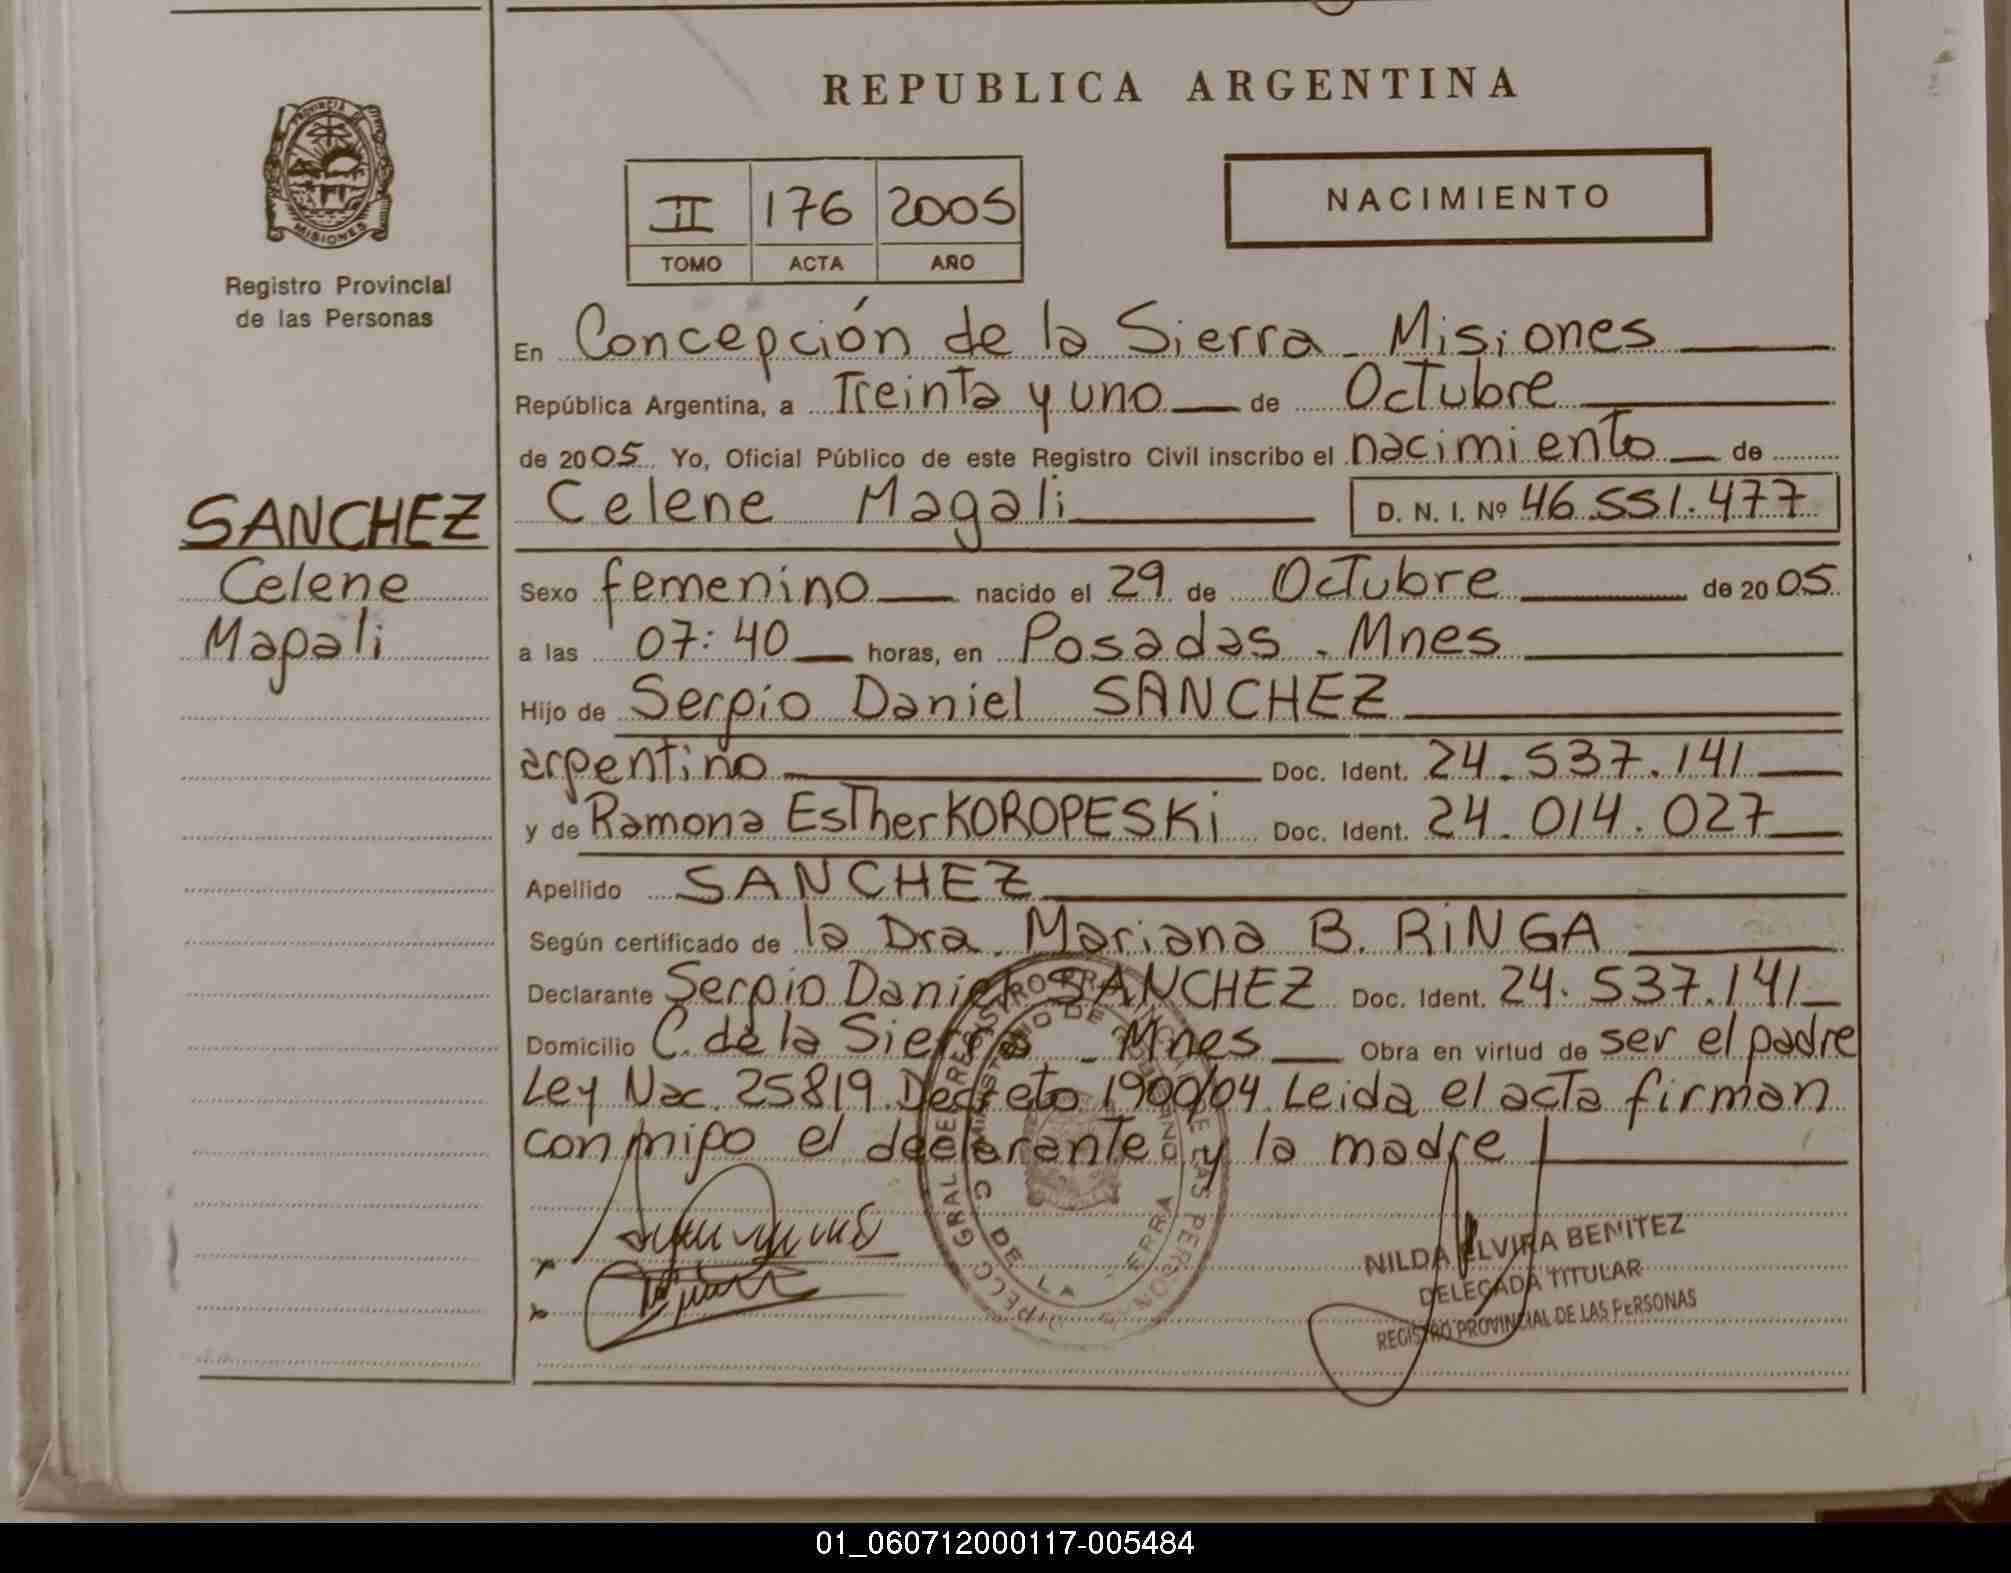 REPUBLICA ARGENTINA
PROVINCIA DE
MISIONES
Registro Provincial
de las Personas
II 176 2005
TOMO ACTA AÑO
NACIMIENTO
En Concepción de la Sierra - Misiones
República Argentina, a Treinta y uno de Octubre
de 2005 Yo, Oficial Público de este Registro Civil inscribo el nacimiento de
SANCHEZ
Celene
Magali
Celene Magali D. N. I. Nº 46.551.477
Sexo femenino nacido el 29 de Octubre de 2005
a las 07:40 horas, en Posadas - Mnes
Hijo de Sergio Daniel SANCHEZ
argentino Doc. Ident. 24.537.141
y de Ramona Esther KOROPESKi Doc. Ident. 24.014.027
Apellido SANCHEZ
Según certificado de la Dra. Mariana B. RiNGA
Declarante Sergio Daniel SANCHEZ Doc. Ident. 24.537.141
Domicilio C. de la Sierra - Mnes Obra en virtud de ser el padre
Ley Nac. 25819. Decreto 1900/04. Leida el acta firman
conmigo el declarante y la madre
DE LA
NILDA ELVIRA BENITEZ
DELEGADA TITULAR
REGISTRO PROVINCIAL DE LAS PERSONAS
01_060712000117-005484